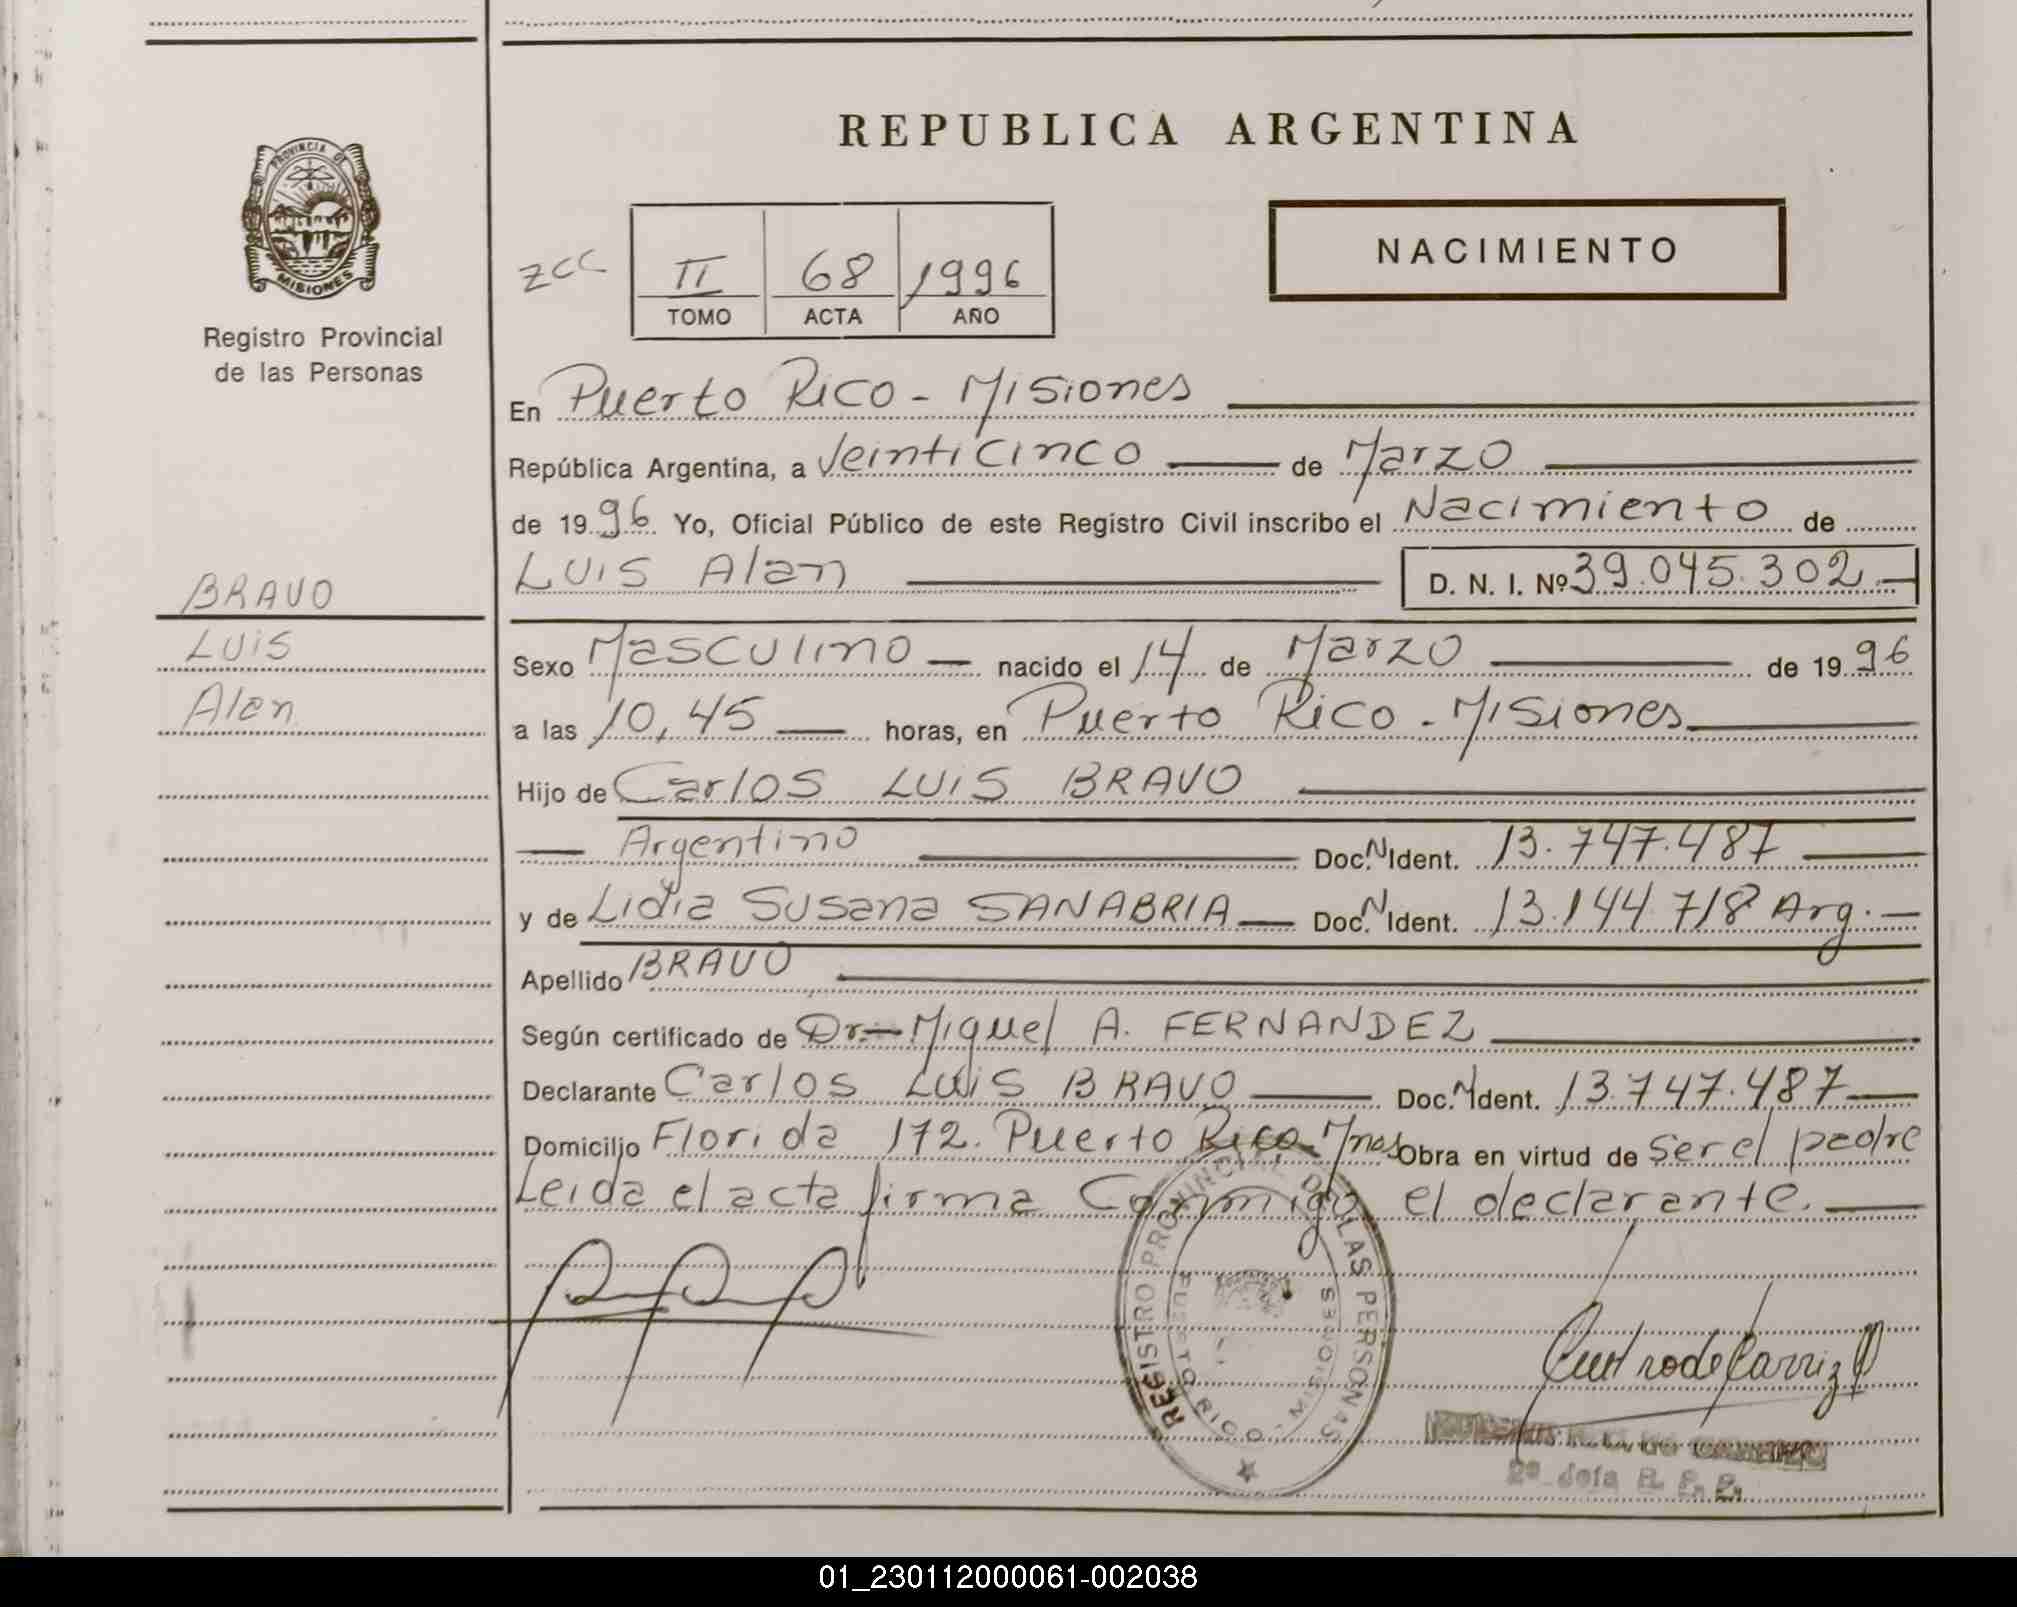 REPUBLICA ARGENTINA
PROVINCIA DE
MISIONES
Registro Provincial
de las Personas
NACIMIENTO
zcc
II 68 1996
TOMO ACTA AÑO
En Puerto Rico - Misiones
República Argentina, a Veinticinco de Marzo
de 1996 Yo, Oficial Público de este Registro Civil inscribo el Nacimiento de
LUIS Alan D. N. I. Nº 39.045.302.
BRAVO
LUIS
Alan
Sexo Masculino nacido el 14 de Marzo de 1996
a las 10,45 horas, en Puerto Rico - Misiones
Hijo de Carlos LUIS BRAVO
Argentino Doc. N Ident. 13.747.487
y de Lidia Susana SANABRIA Doc. N Ident. 13.144.718 Arg.
Apellido BRAVO
Según certificado de Dr. Miguel A. FERNANDEZ
Declarante Carlos LUIS BRAVO Doc. N Ident. 13.747.487
Domicilio Florida 172. Puerto Rico Mnes Obra en virtud de ser el padre
Leida el acta firma Conmigo el declarante.
REGISTRO PROVINCIAL DE LAS PERSONAS
PUERTO RICO - MISIONES
2º Jefa R. P. P.
01_230112000061-002038